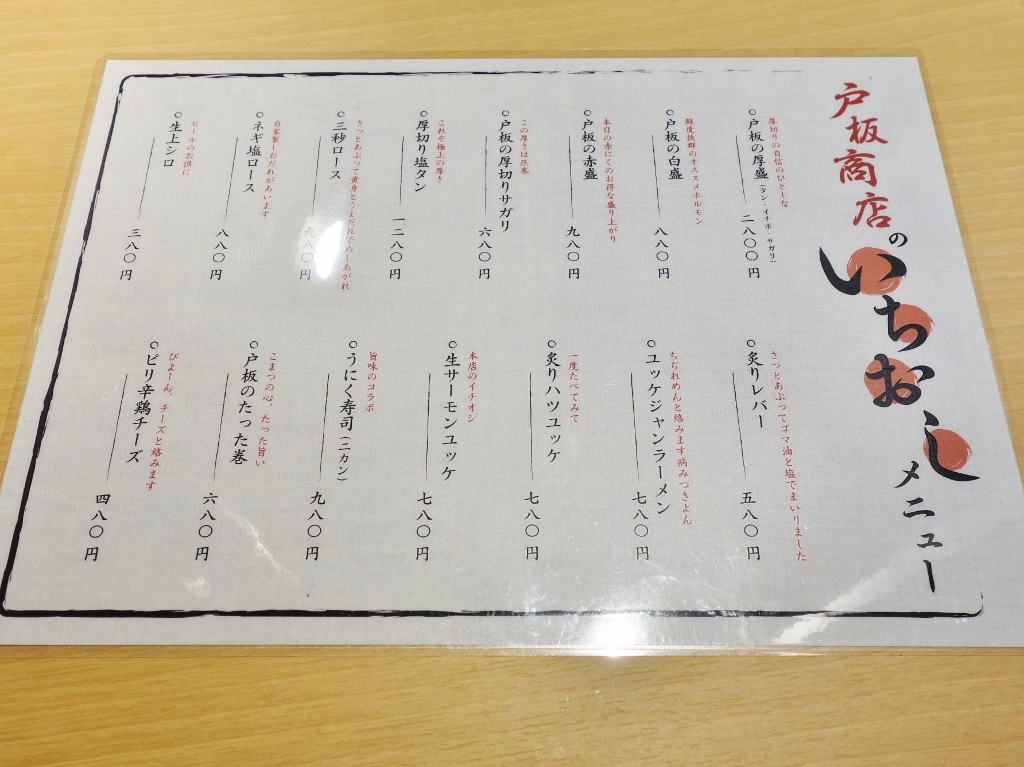 戸板商店のいちおしメニュー
厚切りの自信のひとしな
○戸板の厚盛（タン・イチボ・サガリ）
二八〇〇円
鮮度抜群のオススメホルモン
○戸板の白盛
八八〇円
本日の赤にくのお得な盛り上がり
○戸板の赤盛
九八〇円
この厚さは圧巻
○戸板の厚切りサガリ
六八〇円
これぞ極上の厚さ
○厚切り塩タン
一二八〇円
さっとあぶって黄身とうまだれでめしあがれ
○三秒ロース
九八〇円
自家製しおだれがあいます
○ネギ塩ロース
八八〇円
ビールのお供に
○生上シロ
三八〇円
さっとあぶってゴマ油と塩でまいりました
○炙りレバー
五八〇円
ちぢれめんと絡みます病みつきよん
○ユッケジャンラーメン
七八〇円
一度たべてみて
○炙りハツユッケ
七八〇円
本店のイチオシ
○生サーモンユッケ
七八〇円
旨味のコラボ
○うにく寿司（二カン）
九八〇円
こまつの心、たった旨い
○戸板のたった巻
六八〇円
びよーん、チーズと絡みます
○ピリ辛鶏チーズ
四八〇円